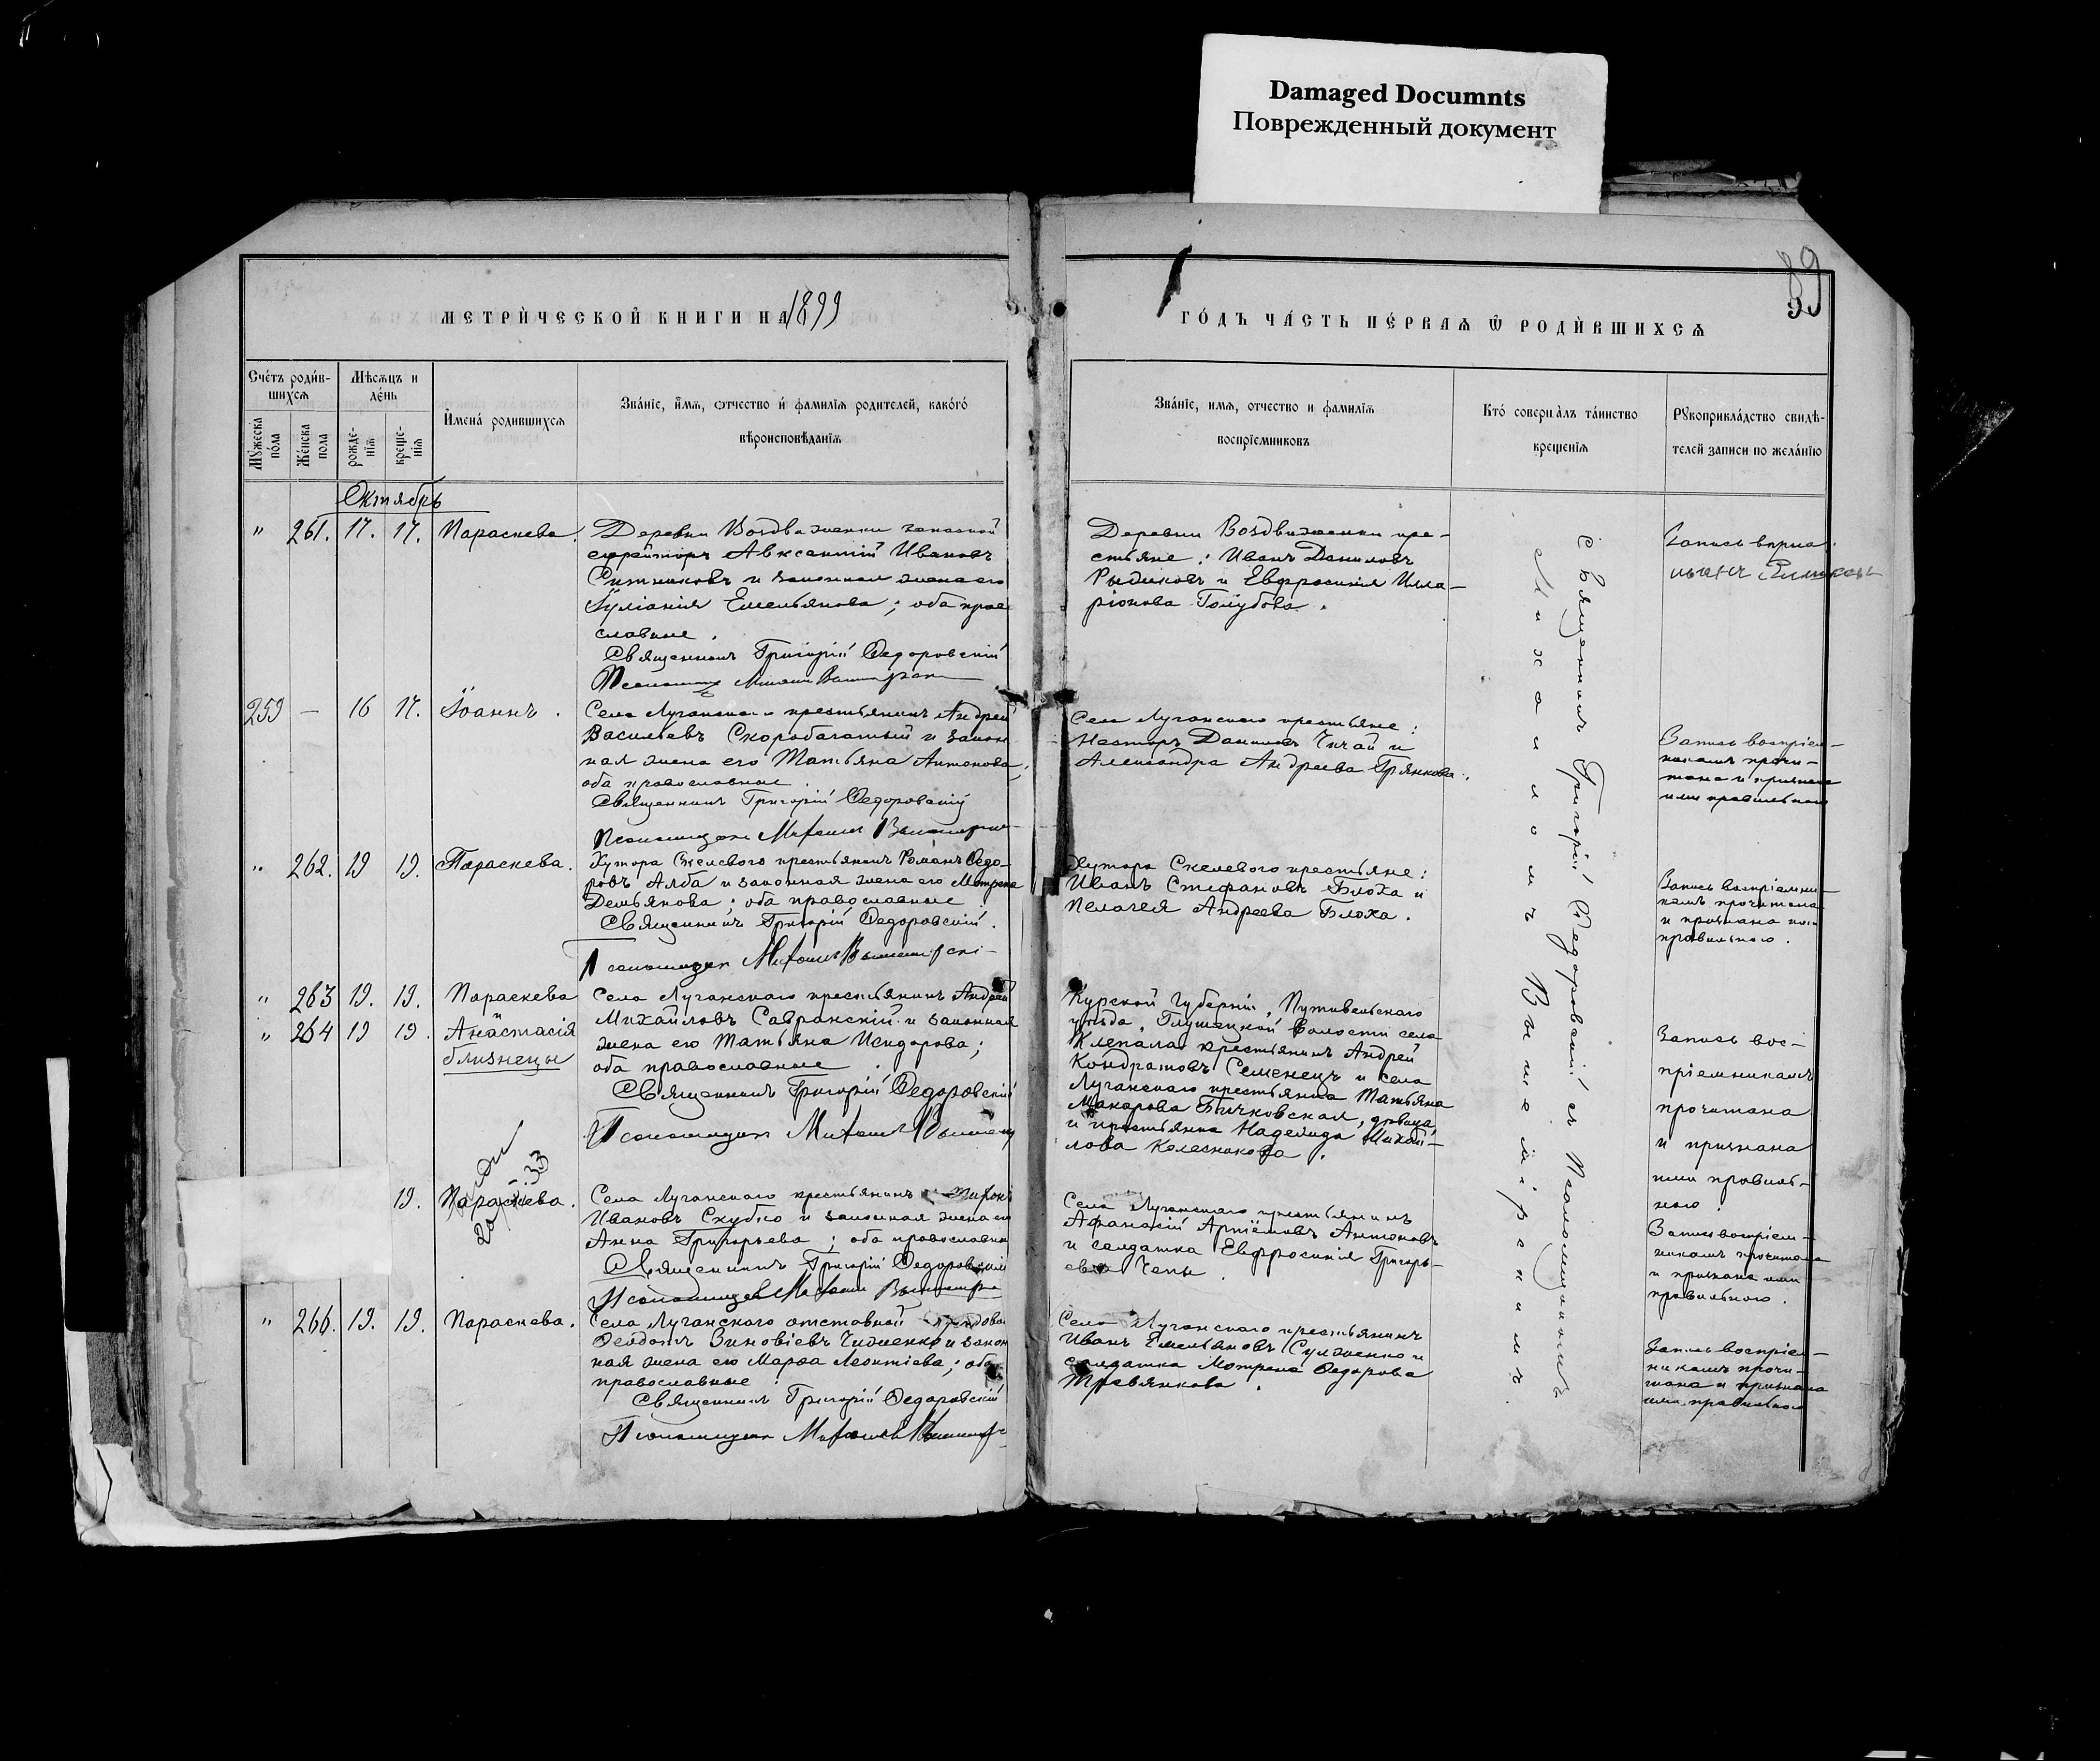 Damaged Documnts
Поврежденный документ
89
МЕТРИ́ЧЕСКОЙ КНИГИ НА 1899
ГО́ДЪ ЧА́СТЬ ПЕ́РВАѦ Ѿ РОДИ́ВШИХСѦ
Сче́тъ роди́в-
шихсѧ
Мѣсѧцъ и
де́нь
Мꙋжеска по́ла
Же́нска пола
рожде-
нїѧ
креще-
нїѧ
И҆мена́ родившихсѧ
Зва́нїе, и҆́мѧ, ѻтчество и҆ фамилїѧ родителей, како́гѡ
вѣроисповѣ́данїѧ
Зва́нїе, имѧ, отчество и фамилїѧ
воспрїемниковъ
Кто́ соверша́лъ та́инство
крещенїѧ
Рꙋкоприкла́дство свидѣ-
телей записи по жела́нїю
Октябрь
" 261. 17. 17. Параскева.
Деревни Воздвиженки запасной
ефрейторъ Авксентій Ивановъ
Ситниковъ и законная жена его
Іуліанія Емельянова; оба право
славные.
Священникъ Григорій Ѳедоровскій
Псаломщикъ
Деревни Воздвиженки кре-
стьяне: Иванъ Даниловъ
Рыжиковъ и Евфросинія Илла-
ріонова Голубова.
259 — 16 17. Іоаннъ.
Села Луганскаго крестьянинъ Андрей
Васильевъ Скоробагатый и закон
ная жена его Татьяна Антонова;
оба православные.
Священникъ Григорій Ѳедоровскій
Псаломщикъ Михаилъ
Села Луганскаго крестьяне:
Несторъ Даниловъ Чичай и
Александра Андреева
Запись воспріем-
никамъ прочи-
тана и признана
ими правильною
" 262. 19 19. Параскева.
Хутора Скелеваго крестьянинъ Романъ Ѳедо-
ровъ Алба и законная жена его Мотрона
Демьянова; оба православные
Священникъ Григорій Ѳедоровскій.
Псаломщикъ Михаилъ
Хутора Скелеваго крестьяне:
Иванъ Стефановъ Блоха и
Пелагея Андреева Блоха.
Запись воспріемни-
камъ прочитана
и признана ими
правильною.
" 263 19. 19. Параскева
и
" 264 19 19. Анастасія
близнецы
Села Луганскаго крестьянинъ Андрей
Михайловъ Савранскій и законная
жена его Татьяна Исидорова;
оба православные.
Священникъ Григорій Ѳедоровскій
Псаломщикъ Михаилъ
Курской Губерніи, Путивльскаго
уѣзда, Глушецкой волости села
Клепала крестьянинъ Андрей
Кондратовъ Семенецъ и села
Луганскаго крестьянка Татьяна
Макарова Бичковская, дѣвица,
и крестьянка Надежда Михай-
лова Колесникова.
Запись вос-
пріемникамъ
прочитана
и признана
ими правиль-
ною.
19. Параскева.
Села Луганскаго крестьянинъ Тихонъ
Ивановъ Скубко и законная жена его
Анна Григорьева; оба православны
Священникъ Григорій Ѳедоровскій
Псаломщикъ Михаилъ
Села Луганскаго крестьянинъ
Афанасій Артёмовъ Антоновъ
и солдатка Евфросинія Григорь-
ева
Запись воспріем-
никамъ прочитана
и признана ими
правильною.
" 266. 19. 19. Параскева.
Села Луганскаго отставной
Ѳеодотъ Зиновіевъ Чиженко и закон
ная жена его Марѳа Леонтіева; оба
православные.
Священникъ Григорій Ѳедоровскій
Псаломщикъ Михаилъ
Села Луганскаго крестьянинъ
Иванъ Емельяновъ Сулженко и
солдатка Мотрона Ѳедорова
Травянкова.
Запись воспріем-
никамъ прочи-
тана и признана
ими правильною
Священникъ Григорій Ѳедоровскій съ Псаломщикомъ
Михаиломъ